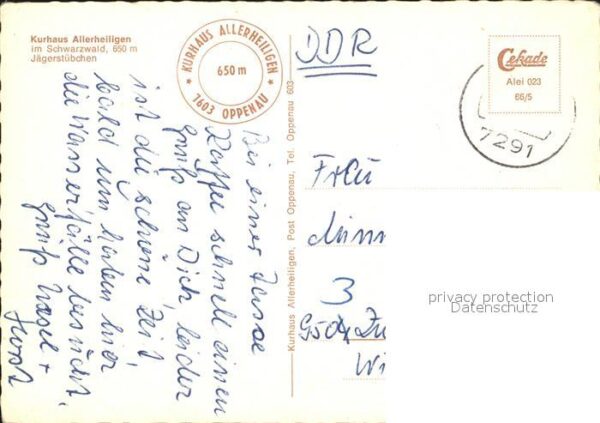 Kurhaus Allerheiligen
im Schwarzwald, 650 m
Jägerstübchen
* KURHAUS ALLERHEILIGEN *
650 m
7603 OPPENAU
Bei einer Tasse
Kaffee schnell einen
Gruß an Dich, leider
ist die schöne Zeit
bald um, haben hier
die Wasserfälle besucht.
Gruß
+
Horst
Kurhaus Allerheiligen, Post Oppenau, Tel. Oppenau 603
DDR
Cekade
Alei 023
66/5
7291
Frau
3
Wi
privacy protection
Datenschutz